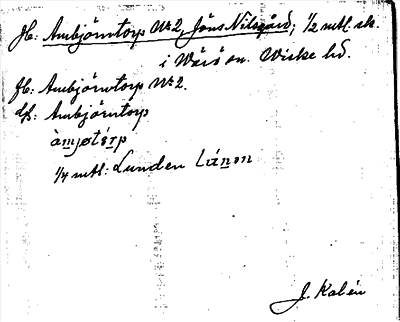 Jb: Ambjörntorp No 2, Jöns Nilsgård; 1/2 mtl. sk.
i Wårö sn. Wiske hd.
Jb: Ambjörntorp No 2.
Ambjörntorp
àmjøtórp
1/4 mtl: Lunden Lánøn
J. Kalén